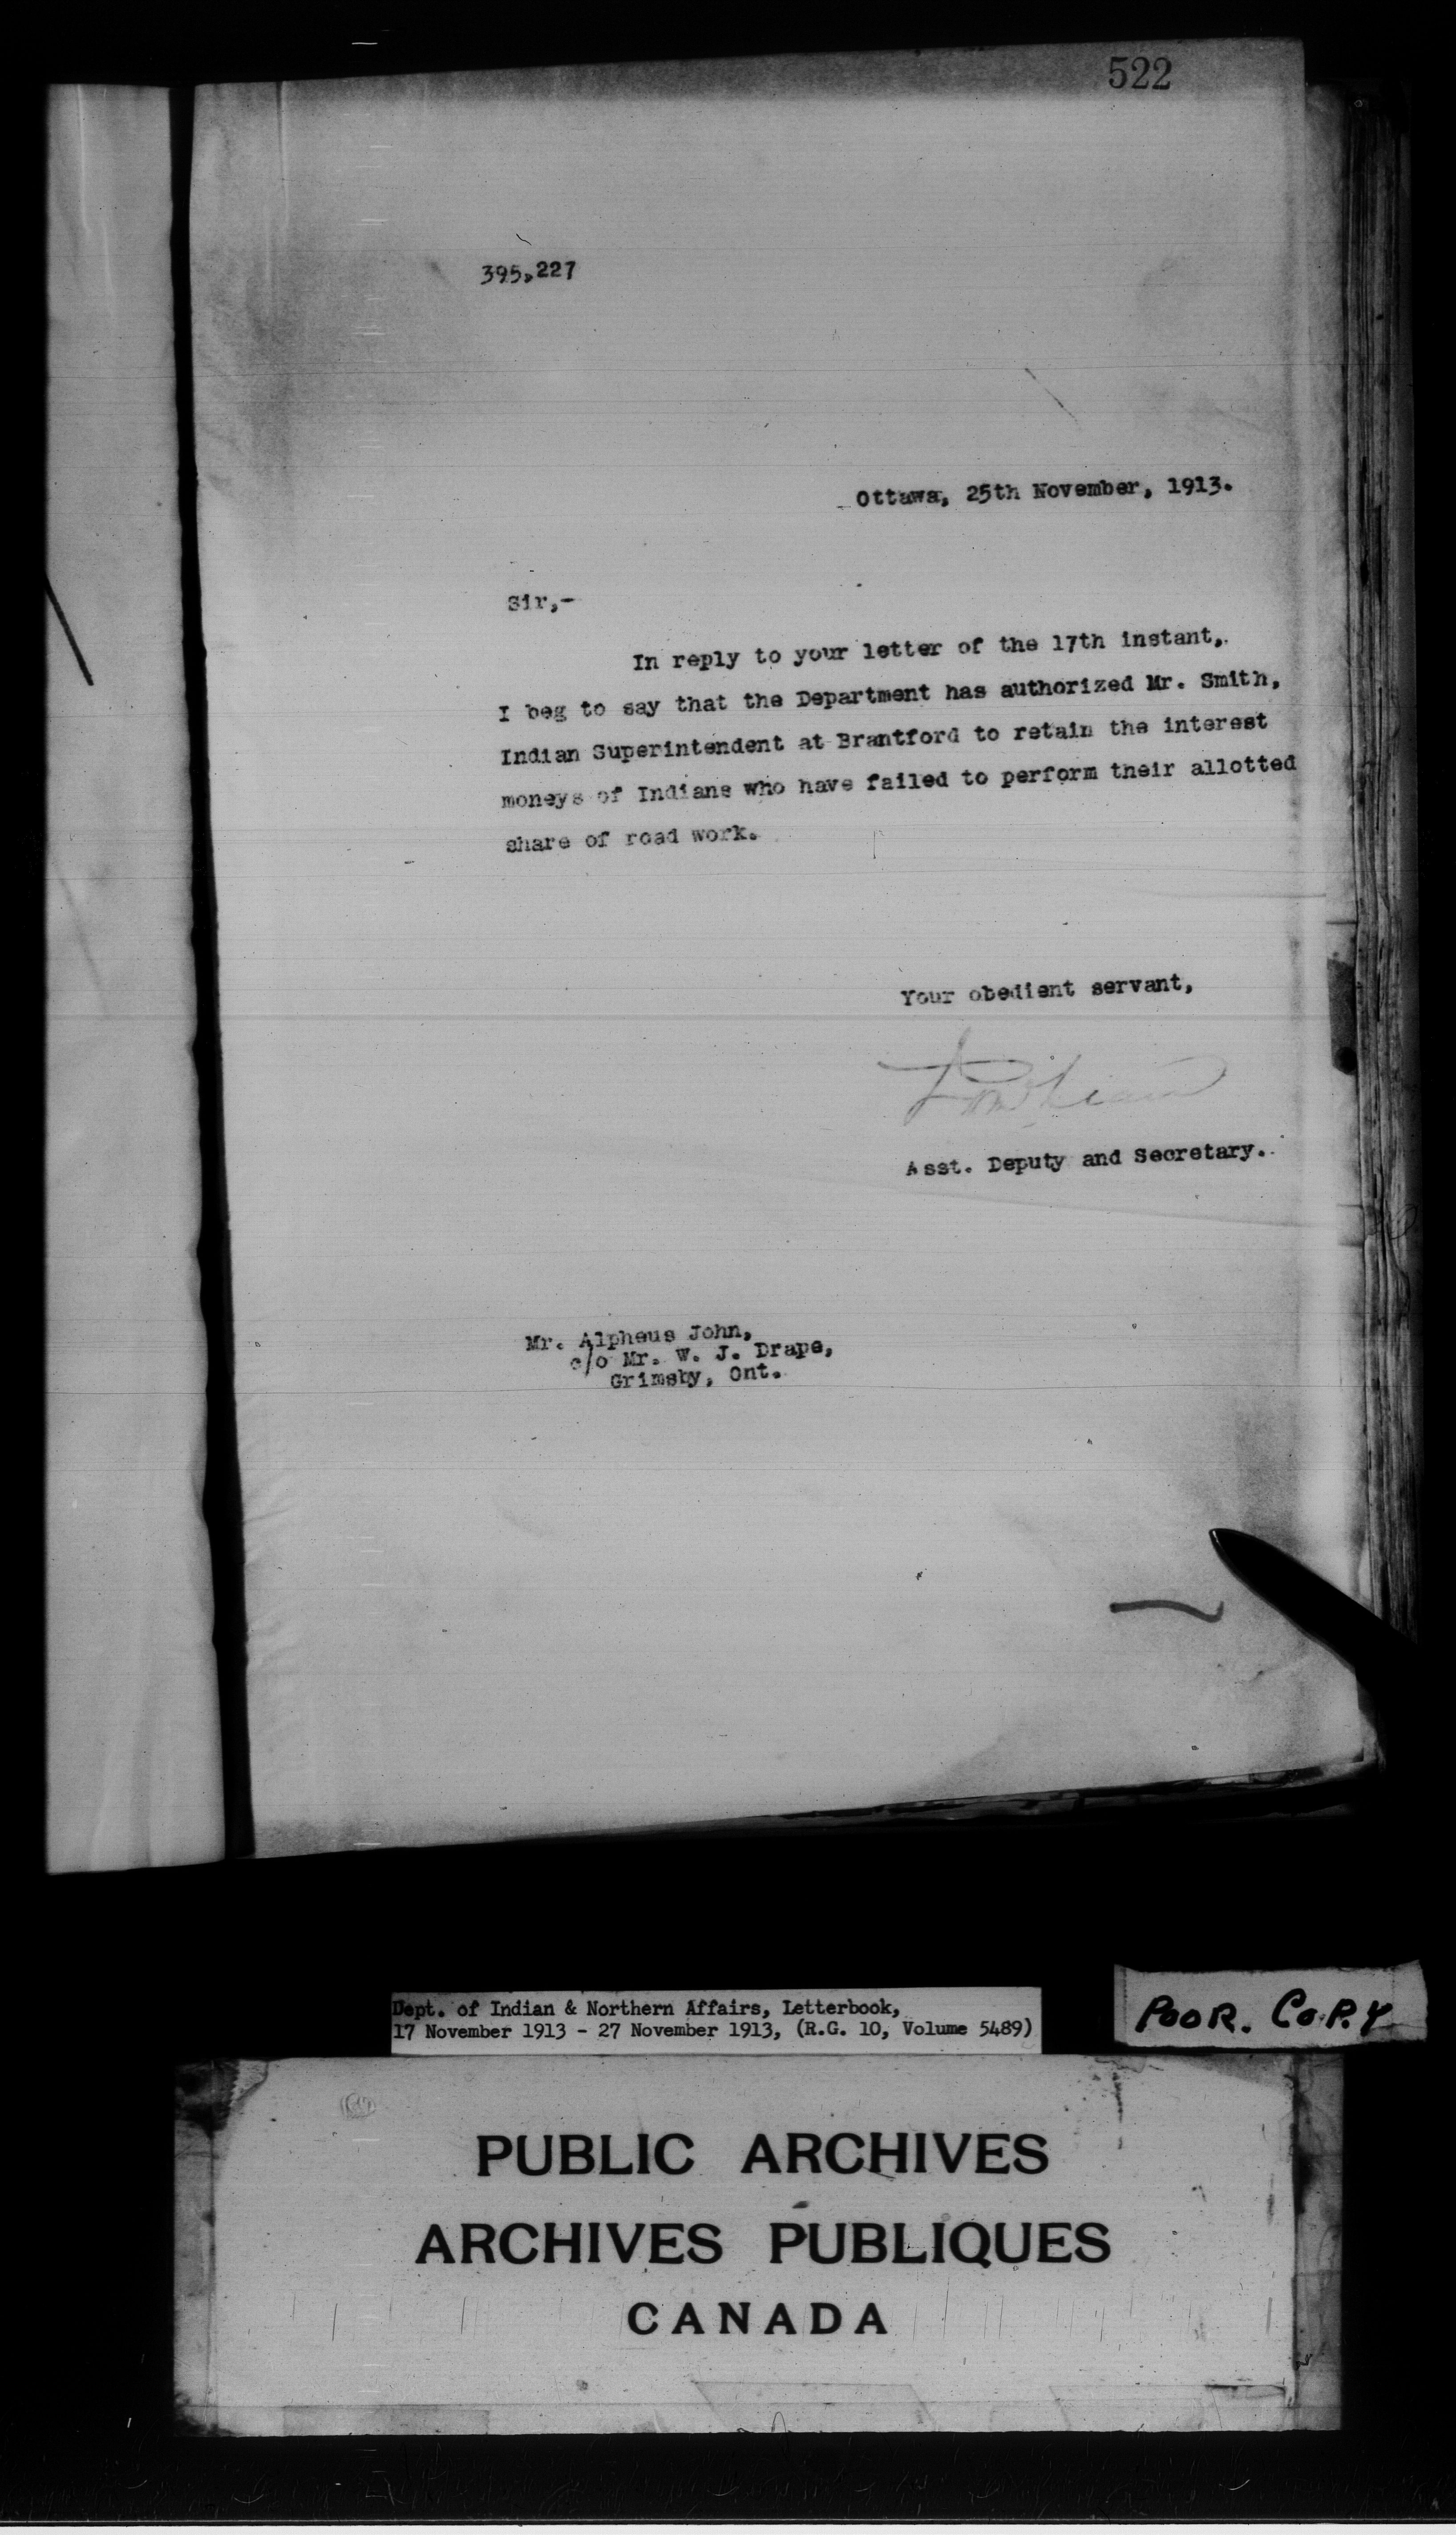 522
395,227
Ottawa, 25th November, 1913.
Sir,-
In reply to your letter of the 17th instant,
I beg to say that the Department has authorized Mr. Smith,
Indian Superintendent at Brantford to retain the interest
moneys of Indians who have failed to perform their allotted
share of road work.
Your obedient servant,
Asst. Deputy and Secretary.
Mr. Alpheus John,
c/o Mr. W. J. Drape,
Grimsby, Ont.
Dept. of Indian & Northern Affairs, Letterbook,
17 November 1913 - 27 November 1913, (R.G. 10, Volume 5489)
POOR. COPY
PUBLIC ARCHIVES
ARCHIVES PUBLIQUES
CANADA